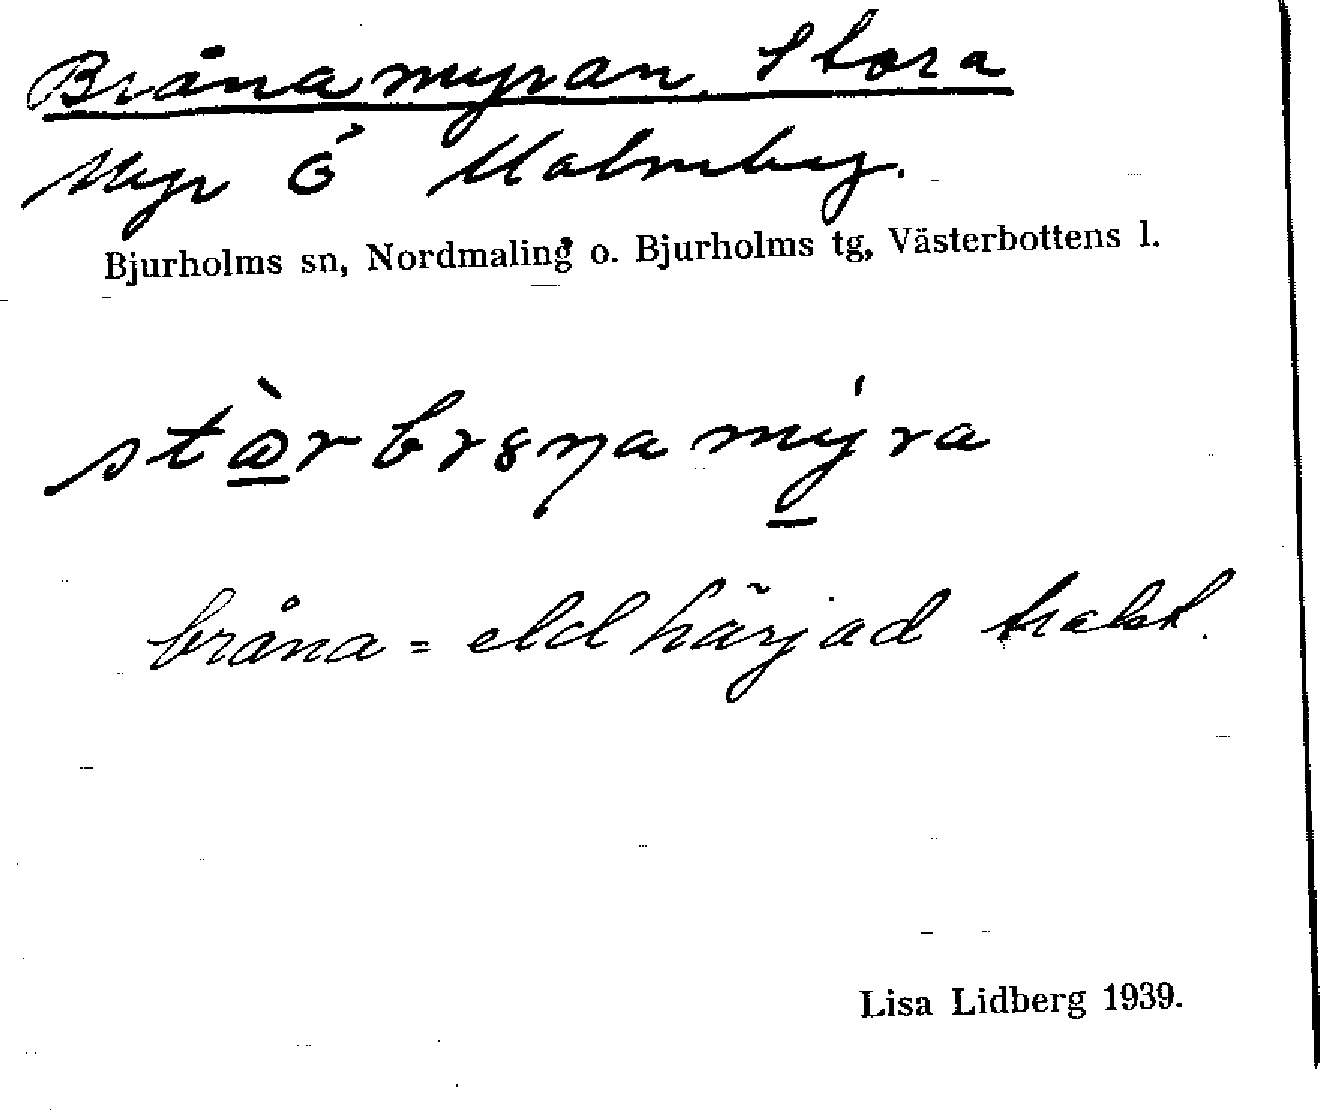 Brånamyran, Stora
Myr Ö Malmberg.
Bjurholms sn, Nordmaling o. Bjurholms tg, Västerbottens l.
bråna = eldhärjad trakt.
Lisa Lidberg 1939.